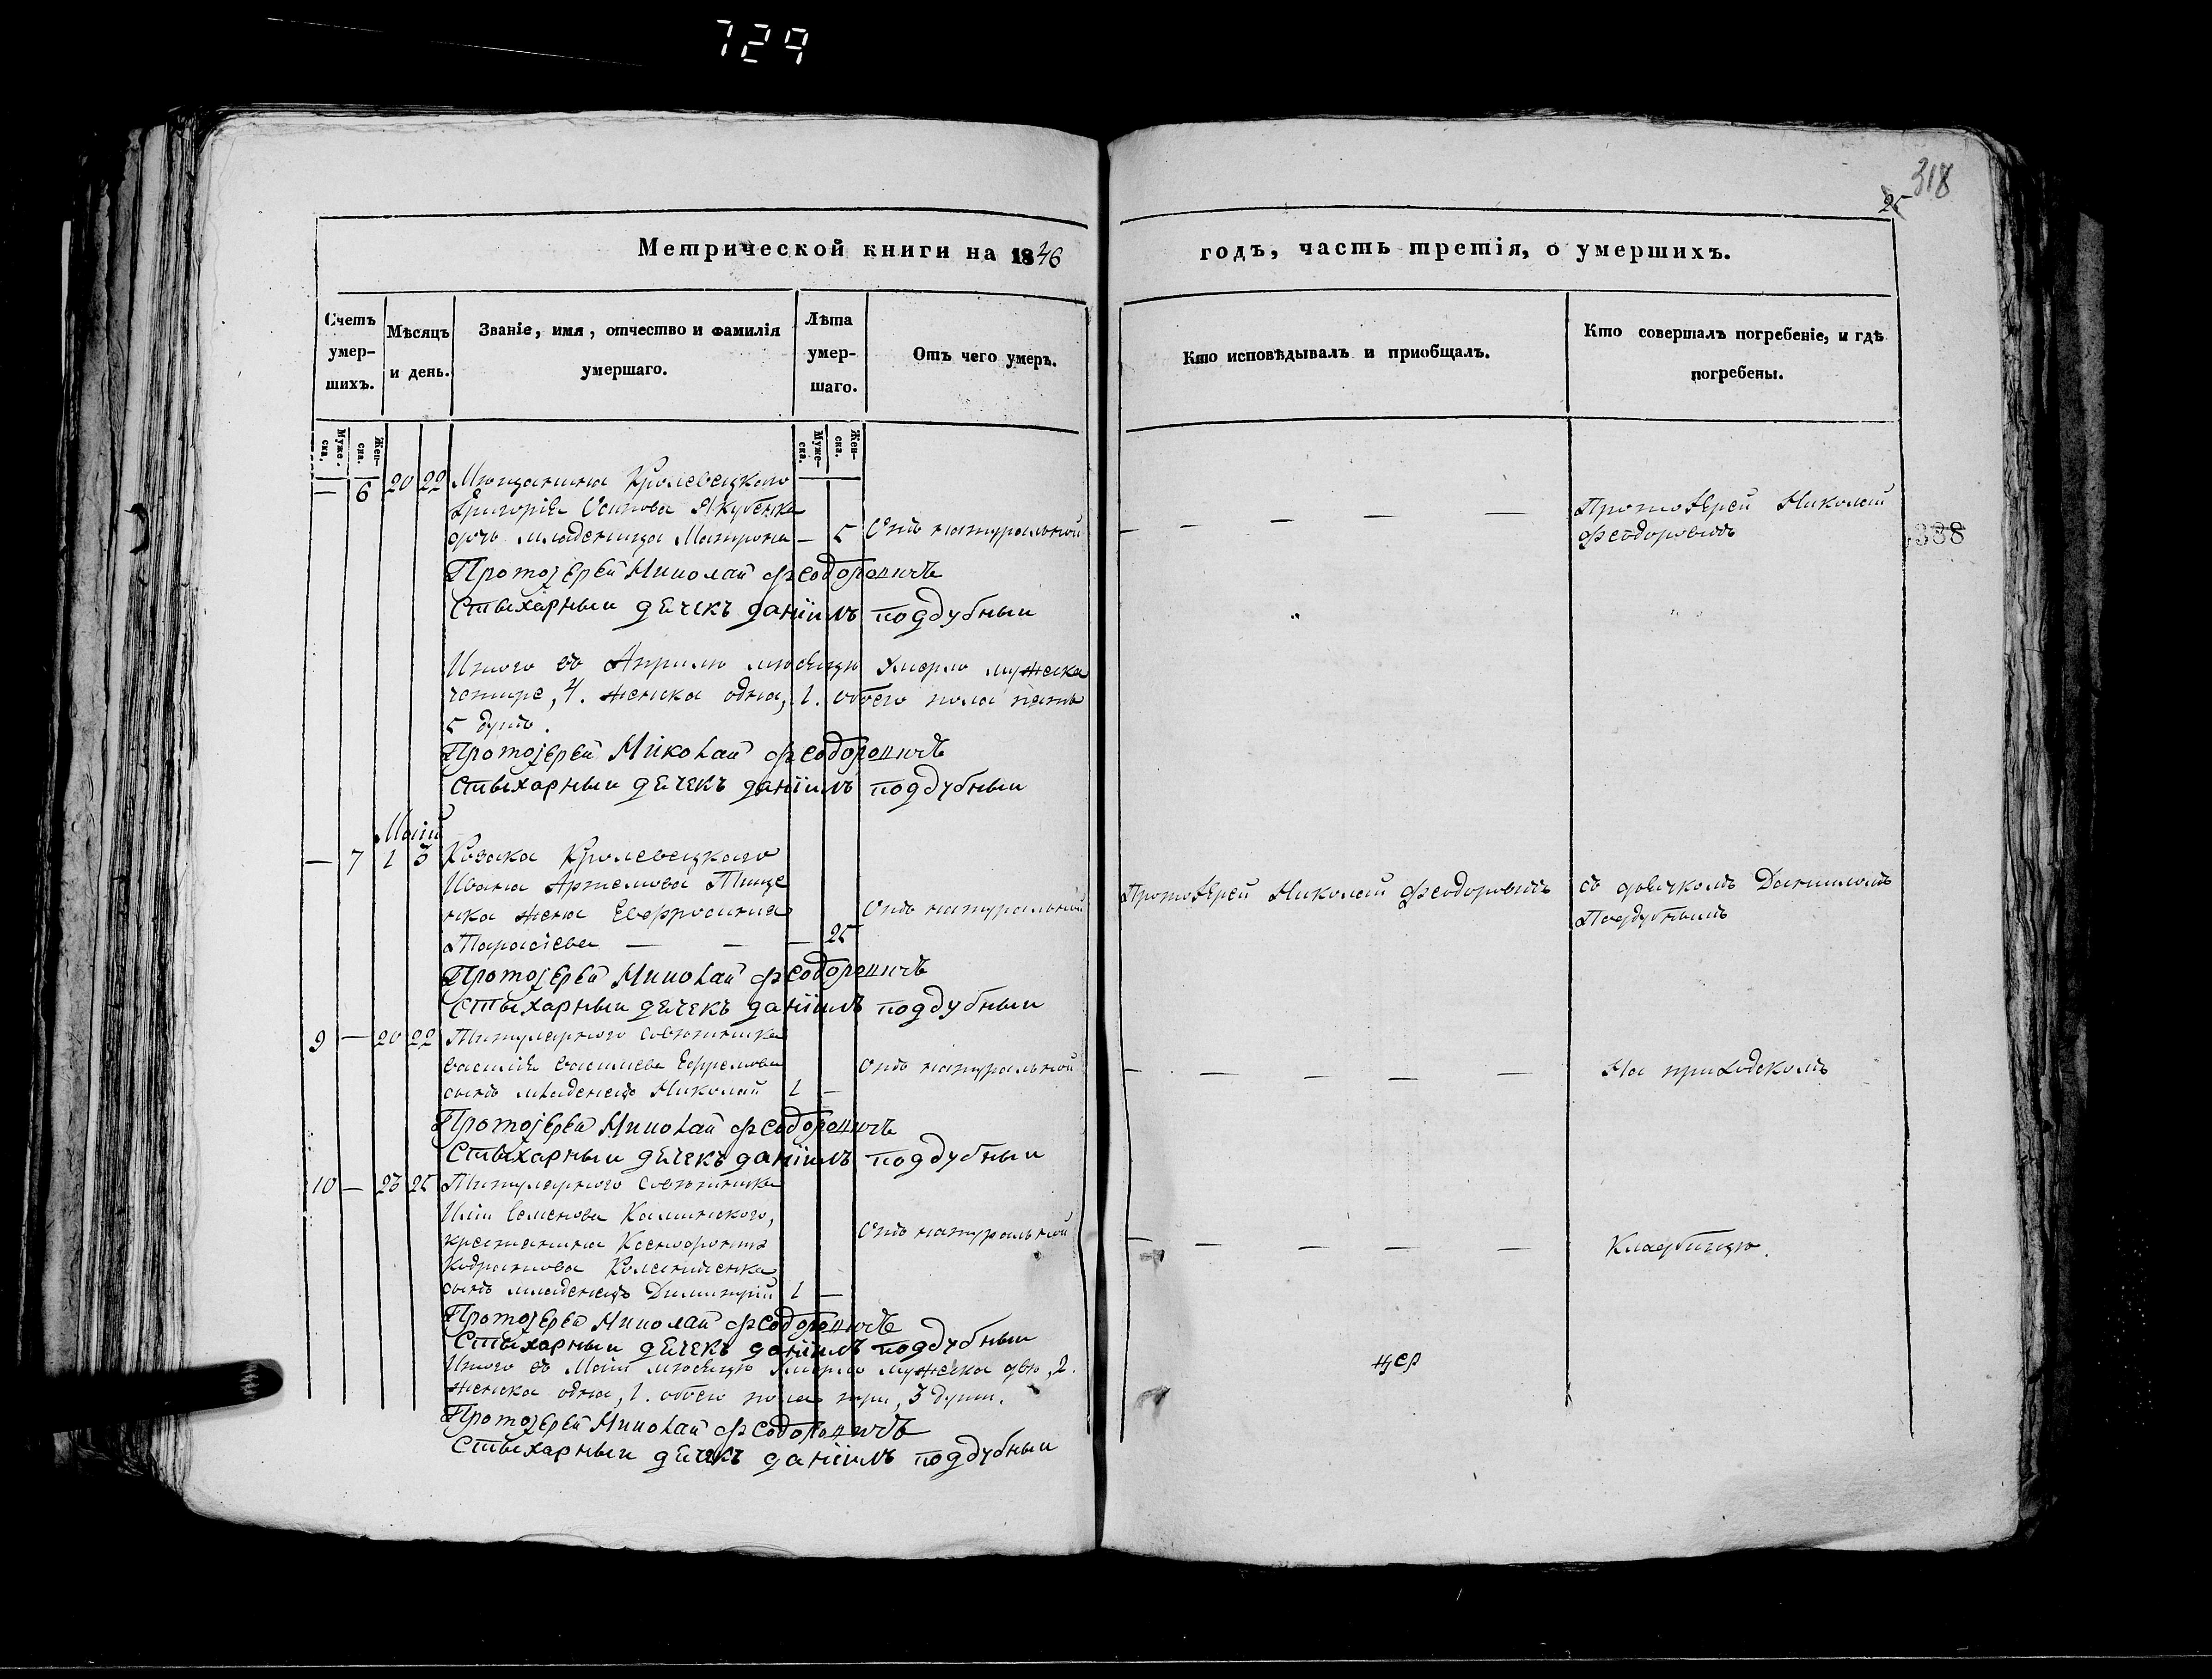 729
318
25
Метрической книги на 1846
годъ, часть третія, о умершихъ.
Счетъ умер-шихъ.
Мѣсяцъ и день.
Званіе, имя, отчество и фамилія умершаго.
Лѣта умер-шаго.
Отъ чего умеръ.
Кто исповѣдывалъ и приобщалъ.
Кто совершалъ погребеніе, и гдѣ погребены.
Муже-ска.
Жен-ска.
Муже-ска.
Жен-ска.
— 6 20 22 Мѣщанина Кролевецкаго
Григорія Осипова Якубенка
дочь младеница Матрона — 5 Отъ натуральной
— — — — —
Протоіерей Николай
Феодоровичъ
338
Протоіерей Николай Феодоровичъ
Стыхарный дячекъ Даніилъ Поддубный
Итого въ Априлѣ мѣсяцѣ умерло мужеска
четыре, 4. женска одна, 1. обоего пола пять
5 душъ.
Протоіерей Николай Феодоровичъ
Стыхарный дячекъ Даніилъ Поддубный
Маій
— 7 1 3 Козака Кролевецкаго
Ивана Артемова Тище
нка жена Евфросинія
Тарасіева — — — 25
Отъ натуральной
Протоіерей Николай Феодоровичъ
съ дьячкомъ Данииломъ
Поддубнымъ
Протоіерей Николай Феодоровичъ
Стыхарный дячекъ Даніилъ Поддубный
9 — 20 22 Титулярного Совѣтника
Василія Васильева Ефремова
сынъ младенецъ Николай 1 —
Отъ натуральной
— — — — —
На приходскомъ
Протоіерей Николай Феодоровичъ
Стыхарный дячекъ Даніилъ Поддубный
10 — 23 25 Титулярного Совѣтника
Иліи Семенова Калинского,
крестянина
сынъ младенецъ Димитрій 1 —
Отъ натуральной
— — — — —
Кладбищѣ.
Протоіерей Николай Феодоровичъ
Стыхарный дячекъ Даніилъ Поддубный
Итого въ Маіи мѣсяцѣ умерло мужеска двѣ, 2.
женска одна, 1. обоего пола три, 3 души.
Протоіерей Николай Феодоровичъ
Стыхарный дячекъ Даніилъ Поддубный